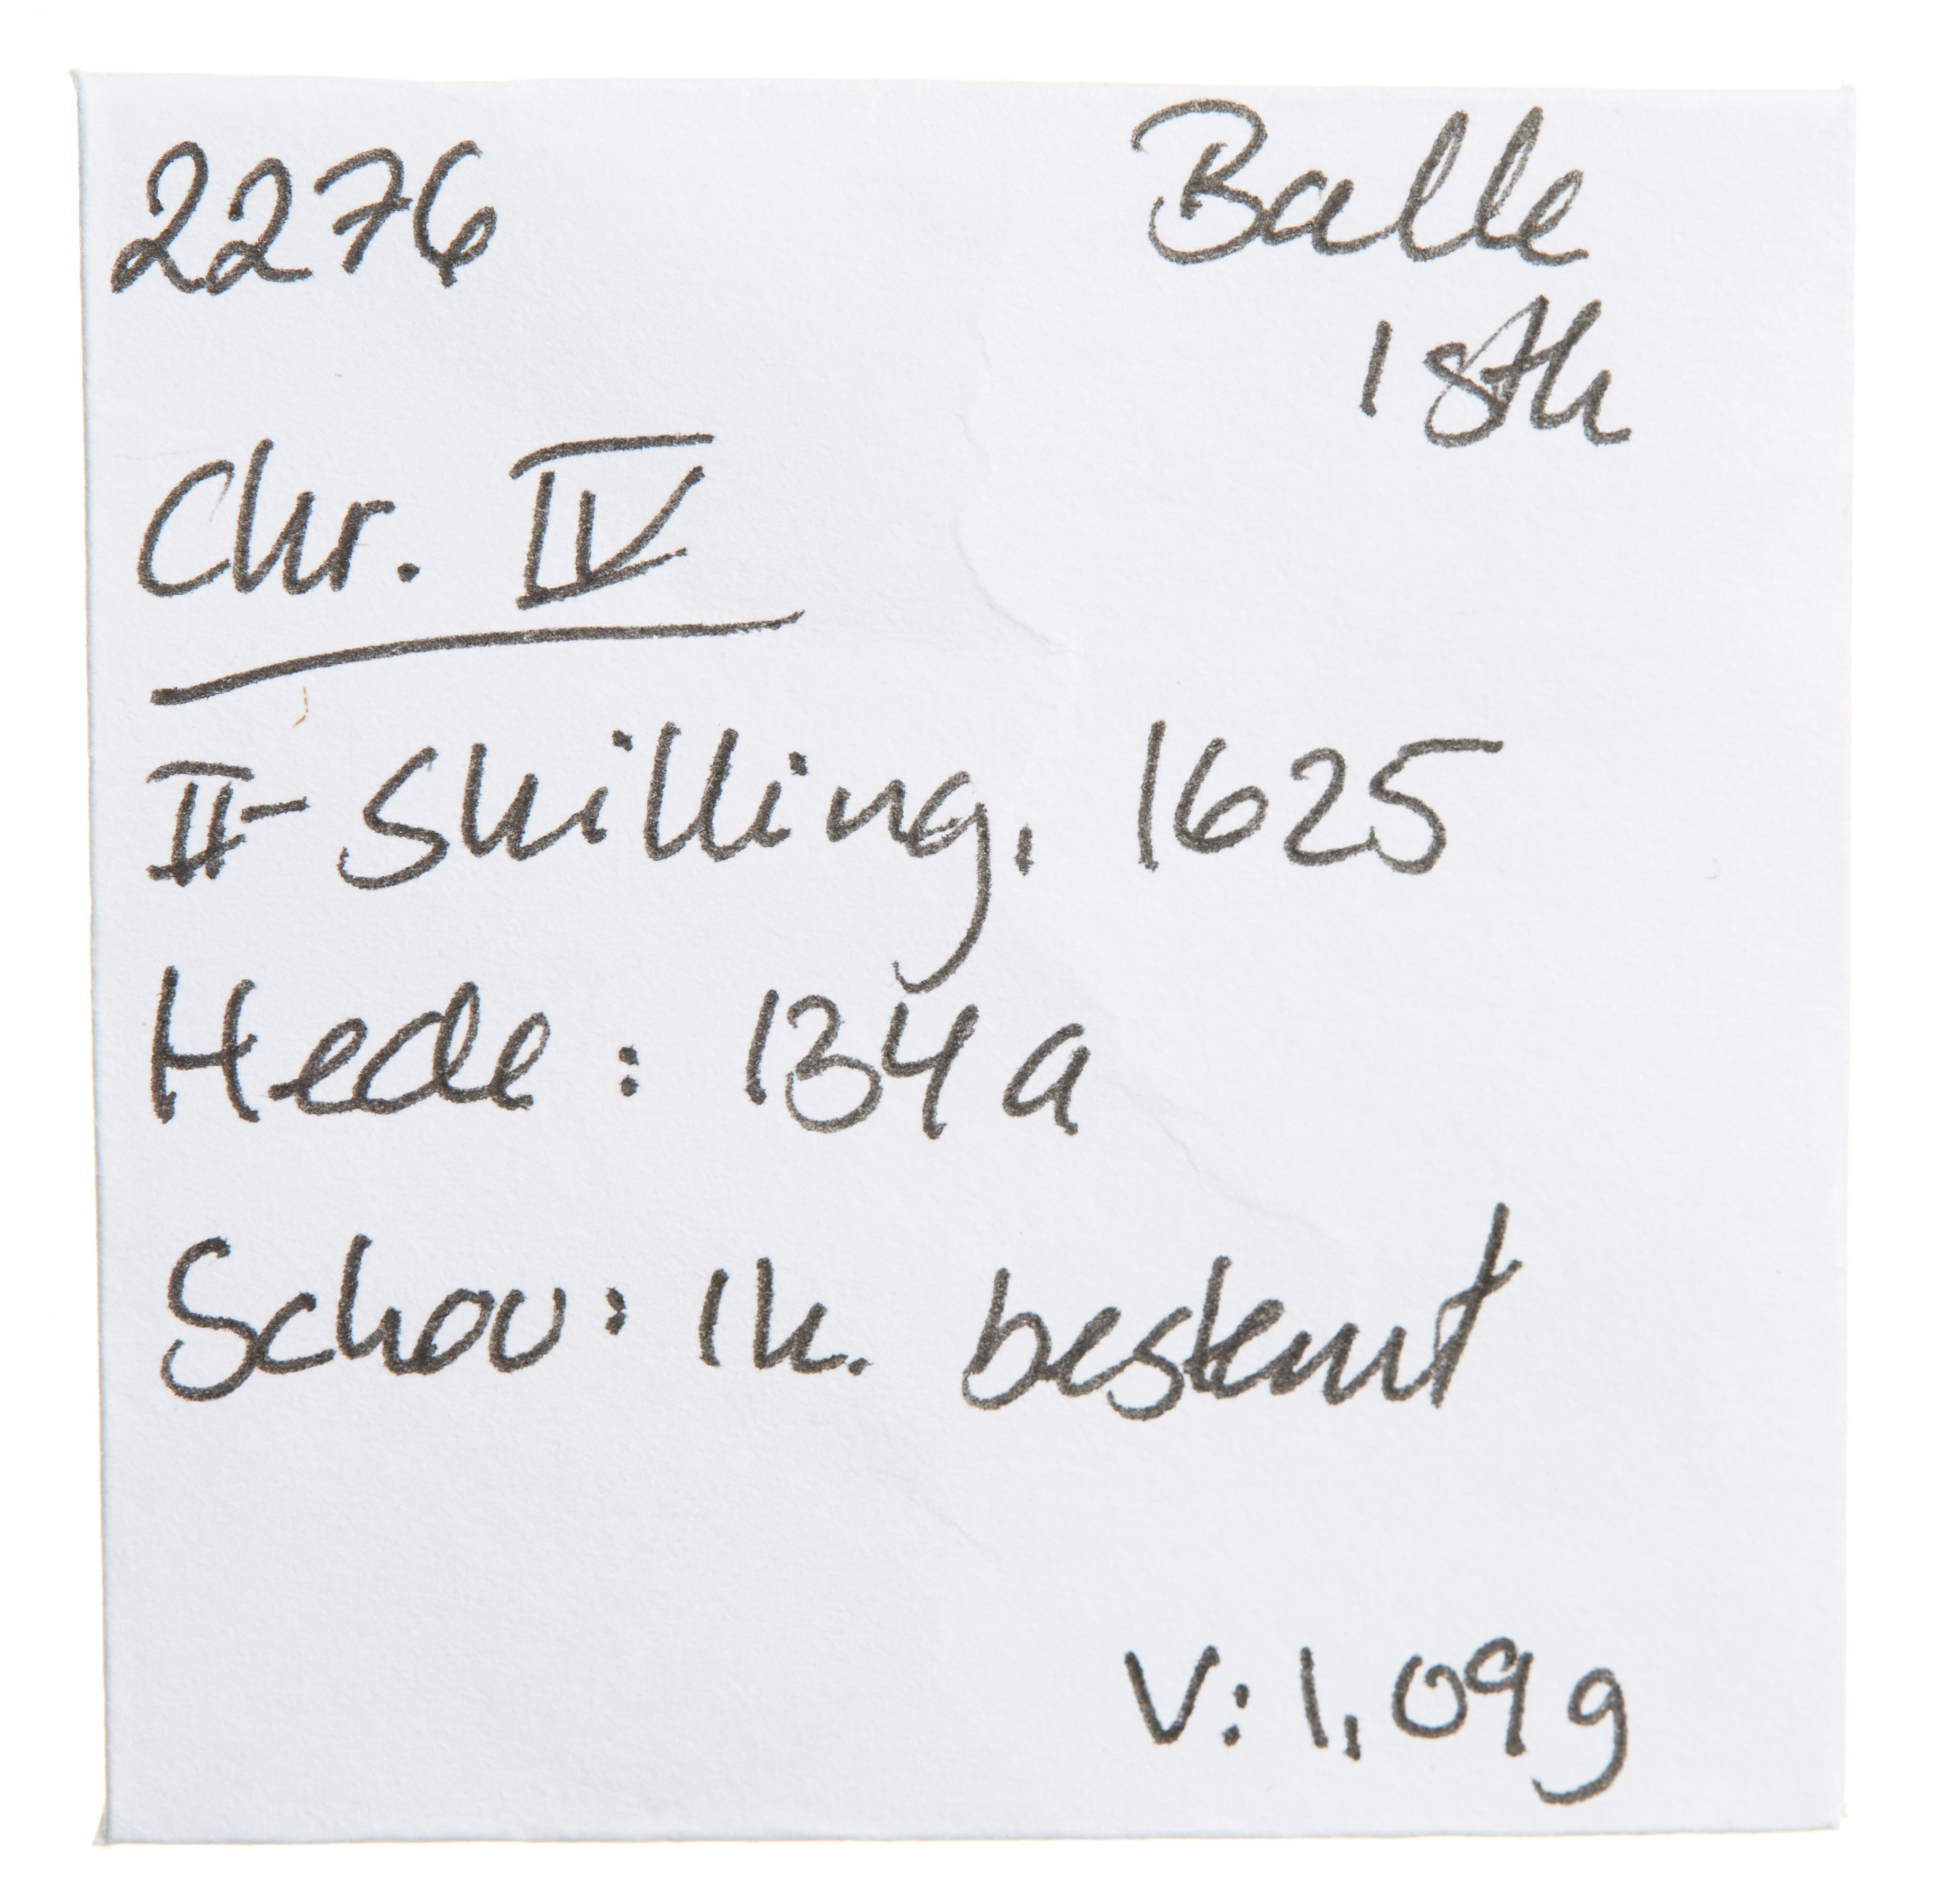 2276
Balle
1 stk
Chr. IV
II-Skilling, 1625
Hede: 134a
Schou: Ik. bestemt
V: 1,09 g